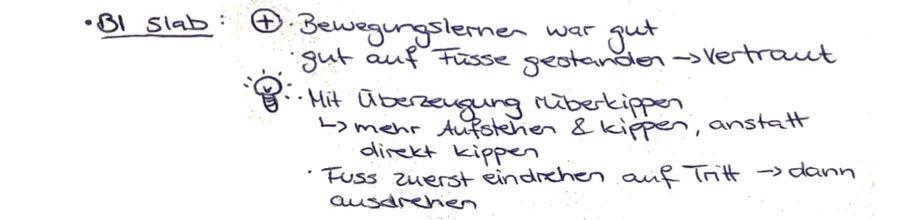 • B1 Slab: ⊕ • Bewegungslernen war gut
• gut auf Füsse gestanden → vertraut
• Mit Überzeugung rüberkippen
↳ mehr Aufstehen & kippen, anstatt
direkt kippen
• Fuss zuerst eindrehen auf Tritt → dann
ausdrehen